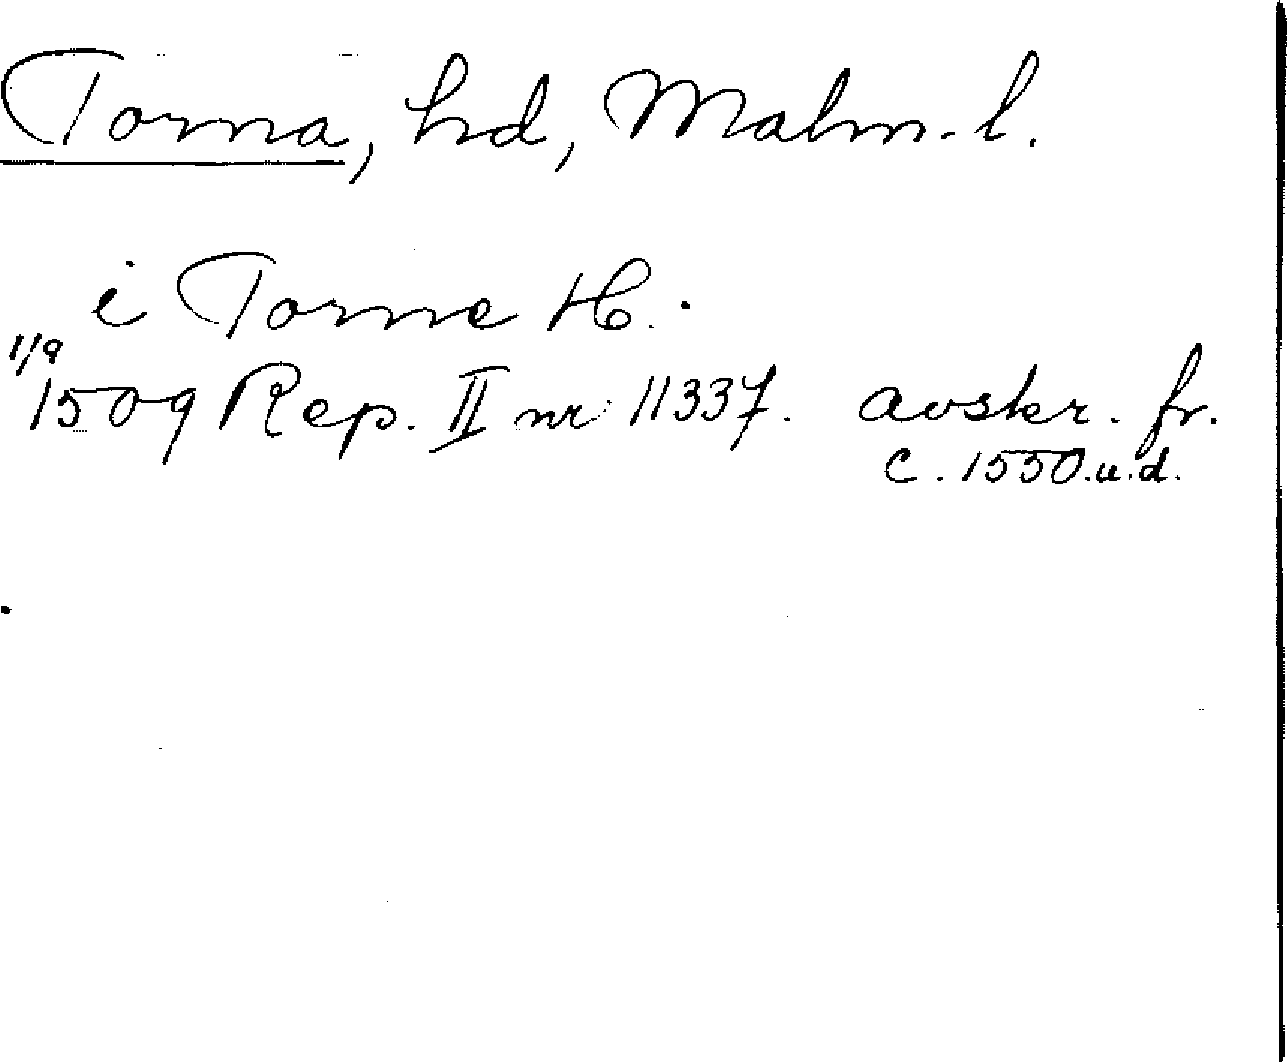 Torna, hd, Malm. l.
i Torne H.
1/9
1509 Rep. II nr 11337. avskr. fr.
c. 1550.u.d.